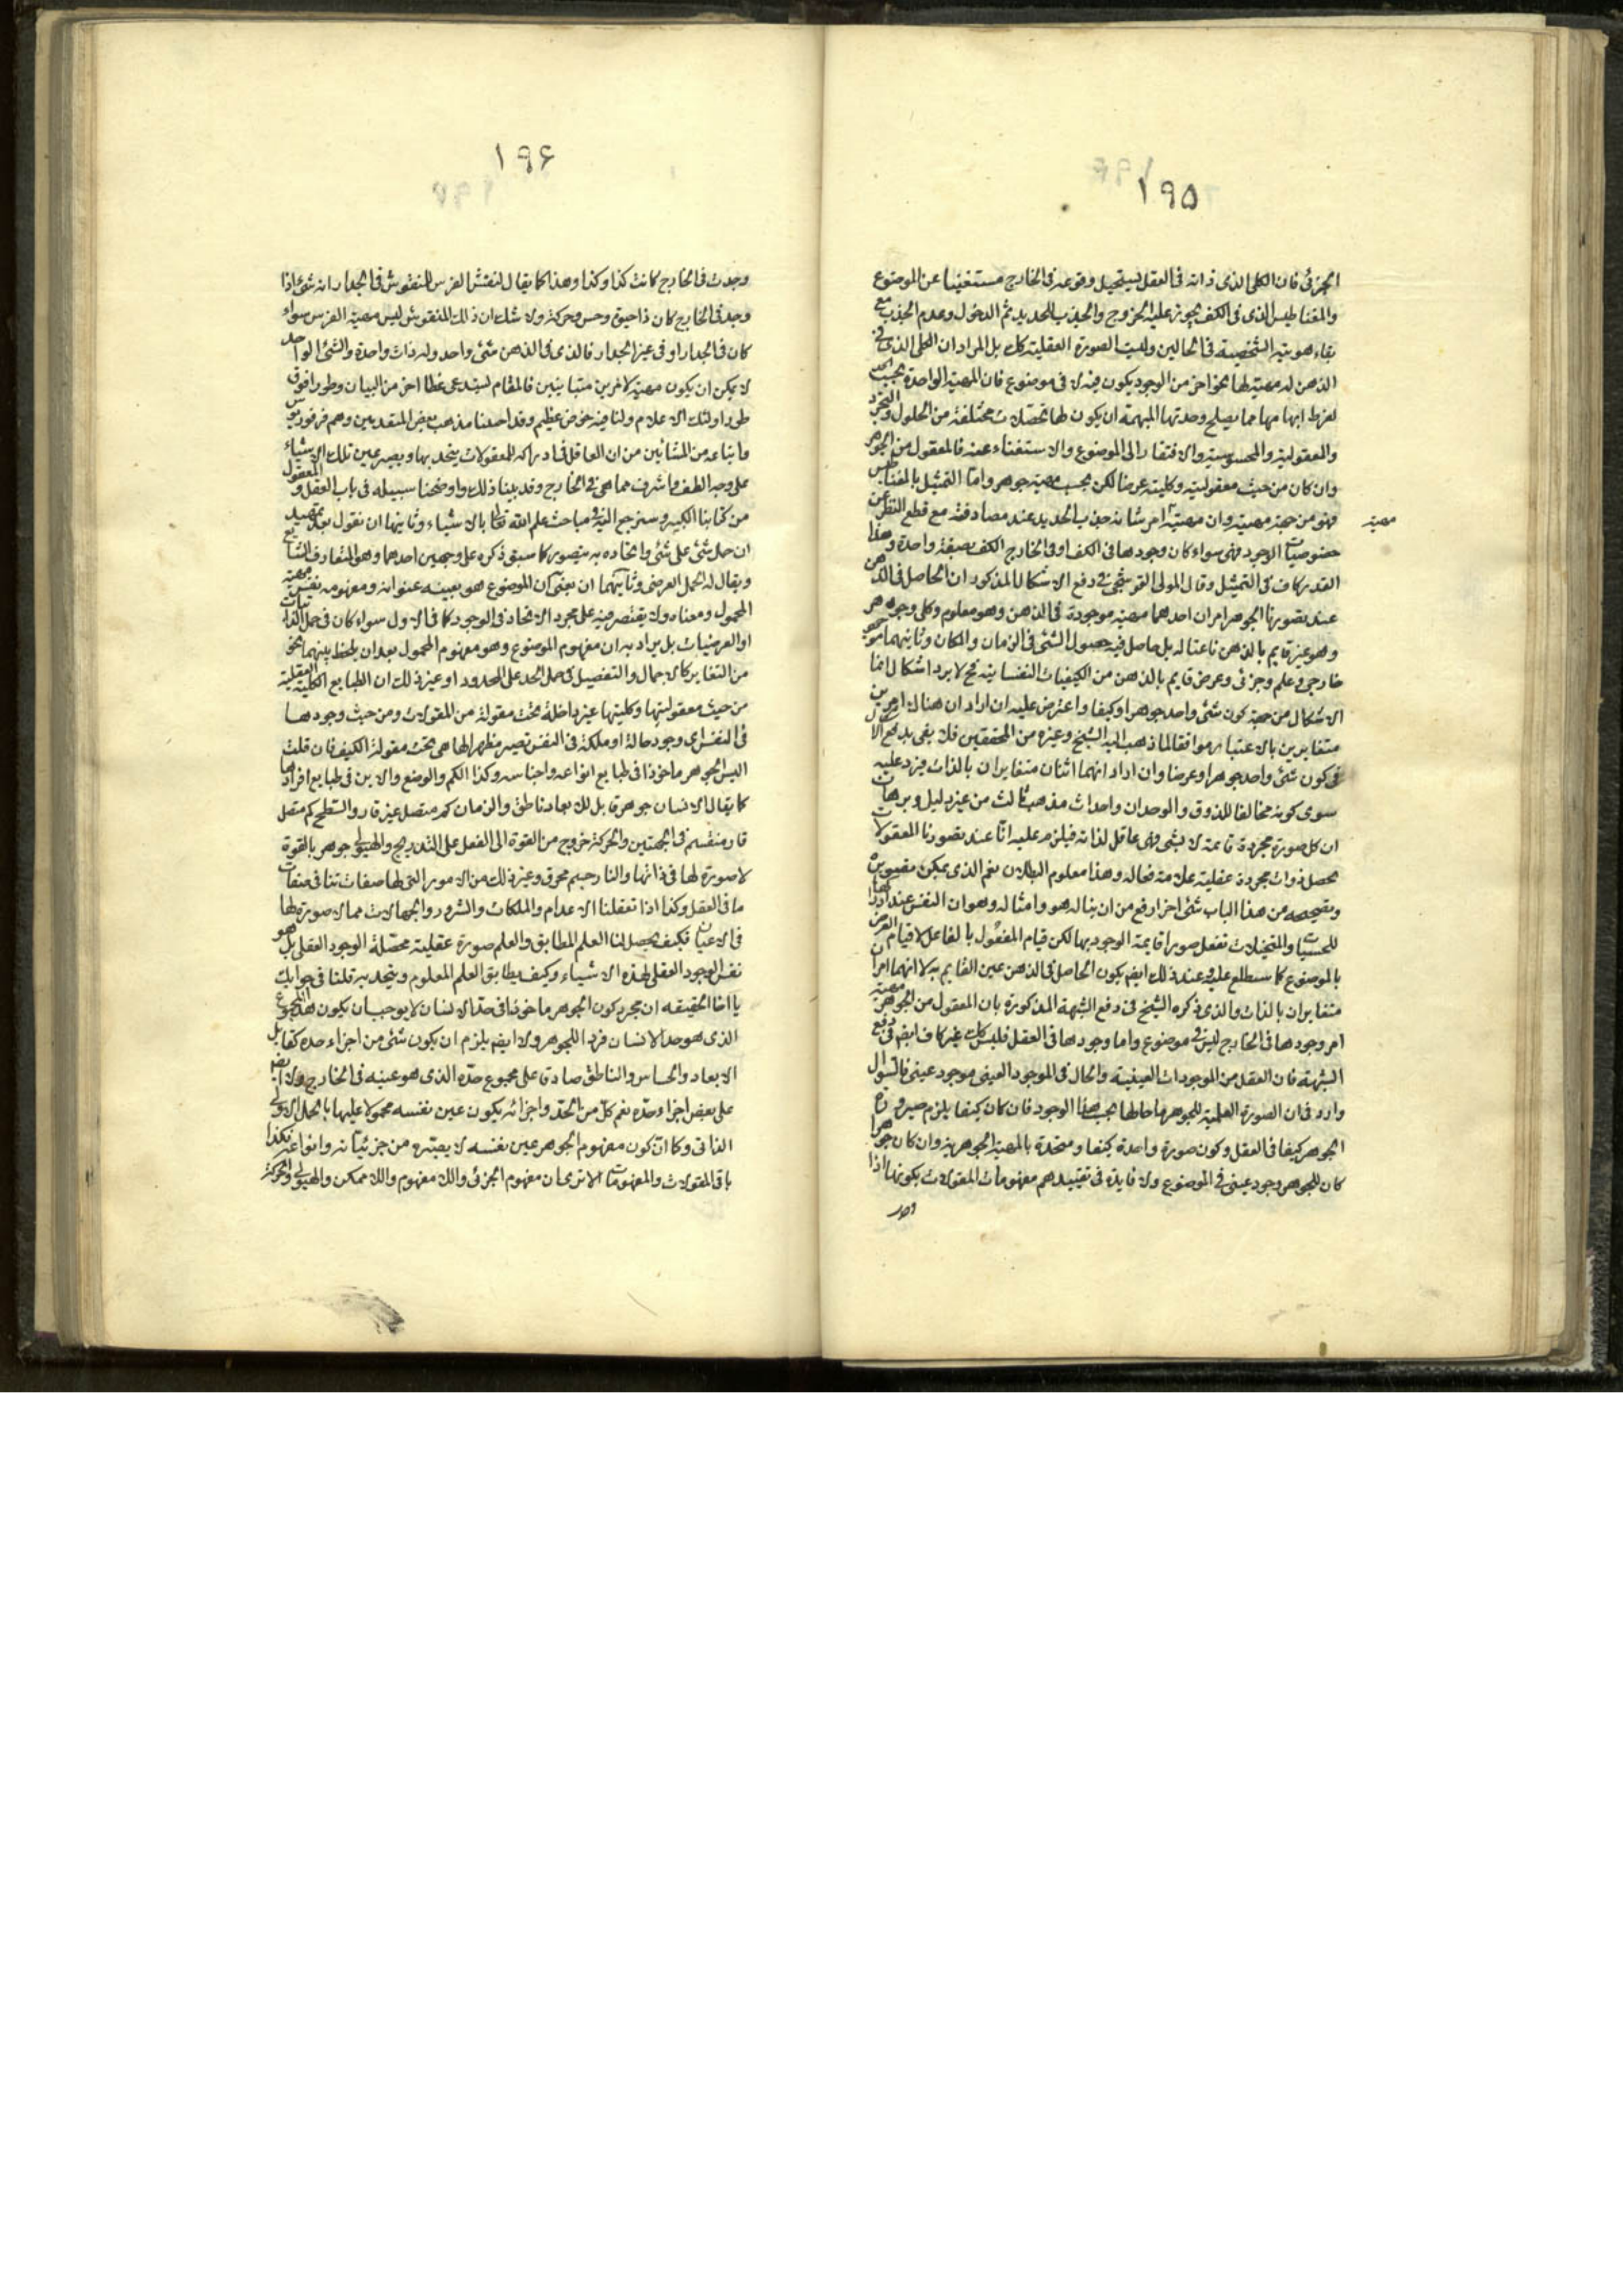 ١٩٥
الجزئى فان الكلى الذى ذاته فى العقل يستحيل وقوعه فى الخارج مستغنيا عن الموضوع
والمغناطيس الذى فى الكف يجوز عليه الخروج والجذب للحديد ثم الدخول وعدم الجذب مع
بقاء هويته الشخصية فى الحالين وليت الصورة العقلية كك بل المراد ان الكلى الذى فى
الذهن له مهية لها نحو اخر من الوجود يكون فيه لا فى موضوع فان المهية الواحدة بحسب
لفرط ابهامها مما يصلح وحدتها المبهمة ان يكون لها تحصلات مختلفة من الحلول والتجرد
والمعقولية والمحسوسية والافتقار الى الموضوع والاستغناء عنه فالمعقول من الجوهر
وان كان من حيث معقوليته وكليته عرضا لكن بحسب مهيته جوهر واما التمثيل بالمغناطيس
فهو من جهة مهيته وان مهيته امر شانه جذب الحديد عند مصادفته مع قطع النظر عن
مهية
خصوصيات الوجود فهى سواء كان وجودها فى الكف او فى الخارج الكف بصفة واحدة وهذا
القدر كاف فى التمثيل وقال المولى القوشجى فى دفع الاشكال المذكور ان الحاصل فى الذهن
عند تصورنا الجوهر امران احدهما مهية موجودة فى الذهن وهو معلوم وكلى وجوهر
وهو غير قايم بالذهن ناعتا له بل حاصل فيه حصول الشئ فى الزمان والمكان وثانيهما موجود
خارجى وعلم وجزئى وعرض قايم بالذهن من الكيفيات النفسانية فح لا يرد اشكال انما
الاشكال من جهة كون شئ واحد جوهرا وكيفا واعترض عليه ان اراد ان هناك امرين
متغايرين بالاعتبار موافقا لما ذهب اليه الشيخ وغيره من المحققين فلا يفى بدفع الاشكال
فى كون شئ واحد جوهرا وعرضا وان اراد انهما اثنان متغايران بالذات فيرد عليه
سوى كونه مخالفا للذوق والوجدان واحداث مذهب ثالث من غير دليل وبرهان
ان كل صورة مجردة قائمة لا بشى فهى عاقل لذاته فيلزم عليه انا عند تصورنا المعقولات
يحصل ذوات مجردة عقلية علامة فعاله وهذا معلوم البطلان نعم الذى يمكن
وتصحيحه من هذا الباب شئ اخر ارفع من ان يناله هو وامثاله وهو ان النفس عند ادراكها
للحسيات والمتخيلات تفعل صورا قايمة الوجود بها لكن قيام المفعول بالفاعل لا قيام العرض
بالموضوع كما سيطلع عليه وعند ذلك ايضم يكون الحاصل فى الذهن عين القايم به لا انهما امران
متغايران بالذات والذى ذكره الشيخ فى دفع الشبهة المذكورة بان المعقول من الجوهر مهية
امر وجودها فى الخارج ليس فى موضوع واما وجودها فى العقل فليس كك غير كاف ايضم فى دفع
الشبهة فان العقل من الموجودات العينية والحال فى الموجود العينى موجود عينى فالسؤال
وارد فى ان الصورة العلمية للجوهر ما حالها بحسب هذا الوجود فان كان كيفا يلزم صيرورة
الجوهر كيفا فى العقل وكون صورة واحدة كيفا ومتحدة بالمهية الجوهرية وان كان جوهرا
كان للجوهر وجود عينى فى الموضوع ولا فايدة فى تقييدهم مفهومات المقولات بكونها اذا
وجد
١٩۶
وجدت فى الخارج كانت كذا وكذا وهذا كما يقال لنقش الفرس المنقوش فى الجدار انه شئ اذا
وجد فى الخارج كان ذا حيوة وحس وحركة ولا شك ان ذلك المنقوش ليس مهية الفرس سواء
كان فى الجدار او فى غير الجدار فالذى فى الذهن شئ واحد وله ذات واحدة والشئ الواحد
لا يمكن ان يكون مهية لامرين متباينين فالمقام يستدعى نمطا اخر من البيان وطورا فوق
طور اولئك الاعلام ولنا فيه خوض عظيم وقد احيينا مذهب بعض المتقدمين وهم فرفوريوس
واتباعه من المشائين من ان العاقل فى ادراكه للمعقولات يتحد بها ويصير عين تلك الاشياء
على وجه الطف واشرف مما هى فى الخارج وقد بينا ذلك واوضحنا سبيله فى باب العقل والمعقول
من كتابنا الكبير وسنرجع اليه فى مباحث علم الله تعالى بالاشياء وثانيها ان نقول بعد تمهيد
ان حمل شئ على شئ واتحاده به يتصور كما سبق ذكره على وجهين احدهما وهو المتعارف الشايع
ويقال له الحمل العرضى وثانيهما ان يعنى ان الموضوع هو بعينه عنوانه ومفهومه نفس مهية
المحمول ومعناه ولا يقتصر فيه على مجرد الاتحاد فى الوجود كما فى الاول سواء كان فى حمل الذاتيات
او العرضيات بل يراد به ان مفهوم الموضوع وهو مفهوم المحمول بعد ان يلحظ بينهما نحو
من التغاير كالاجمال والتفصيل فى حمل الحد على المحدود او غير ذلك ان الطبايع الكلية العقلية
من حيث معقوليتها وكليتها غير داخلة تحت مقولة من المقولات ومن حيث وجودها
فى النفس اى وجود حالة او ملكة فى النفس تصير مظهرا لها هى تحت مقولة الكيف فان قلت
اليس الجوهر ماخوذا فى طبايع انواعه واجناسه وكذا الكم والوضع والاين فى طبايع افرادها
كما يقال الانسان جوهر قابل للابعاد ناطق والزمان كم متصل غير قار والسطح كم متصل
قار منقسم فى الجهتين والحركة خروج من القوة الى الفعل على التدريج والهيولى جوهر بالقوة
لا صورة لها فى ذاتها والنار جسم محرق وغير ذلك من الامور التى لها صفات تنافى صفات
ما فى العقل وكذا اذا تعقلنا الاعدام والملكات والشرور والجهالات مما لا صورة لها
فى الاعيان فكيف يحصل لنا العلم المطابق والعلم صورة عقلية محصلة الوجود العقلى بل هو
نفس الوجود العقلى لهذه الاشياء وكيف يطابق العلم المعلوم ويتحد به قلنا فى جوابك
يا اخا الحقيقه ان مجرد كون الجوهر ماخوذا فى حد الانسان لا يوجب ان يكون هذا المجموع
الذى هو حد الانسان فردا للجوهر ولا ايضم يلزم ان يكون شئ من اجزاء حده كقابل
الابعاد والحساس والناطق صادق على مجموع حده الذى هو عينه فى الخارج ولا ايضم
على بعض اجزاء حده نعم كل من الحد واجزائه يكون عين نفسه محمولا عليها بالحمل الاولى
الذاتى وكما ان كون مفهوم الجوهر عين نفسه لا يصيره من جزئياته وانواعه فكذا
باقى المقولات والمفهومات الا ترى ان مفهوم الجزئى واللا مفهوم واللا ممكن والهيولى والحركة